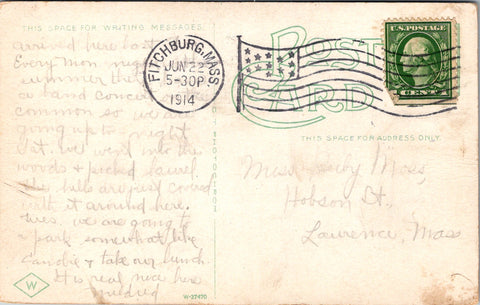 THIS SPACE FOR WRITING MESSAGES.
arrived here last
Every Mon. night
summer the
a band concert
common so we are
going up to night
Sat. we went into the
woods & picked laurel.
The hills are just covered
with it around here.
Tues. we are going to
a park somewhat like
Canobie & take our lunch.
It is real nice here
Mildred
W
W-27470
FITCHBURG, MASS.
JUN 22
5-30P
1914
POST CARD
U.S. POSTAGE
CENT
THIS SPACE FOR ADDRESS ONLY.
Miss Ruby Moss,
Hobson St.,
Lawrence, Mass